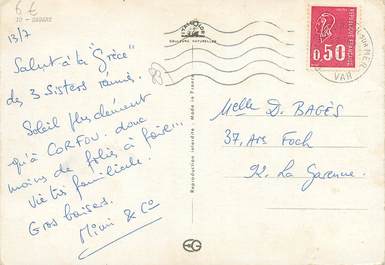 6 €
13/7
Salut à la "Grèce"
des 3 Sisters réunis.
Soleil plus clément
qu'à CORFOU. donc
moins de folies à faire...
vie très familiale.
Gros baisers.
Mimi & Co
COULEURS NATURELLES
Reproduction interdite - Made in
EG
REPUBLIQUE FRANCAISE
0,50
VAR
Melle D. BAGÈS
37, Ars Foch
92. La Garenne.